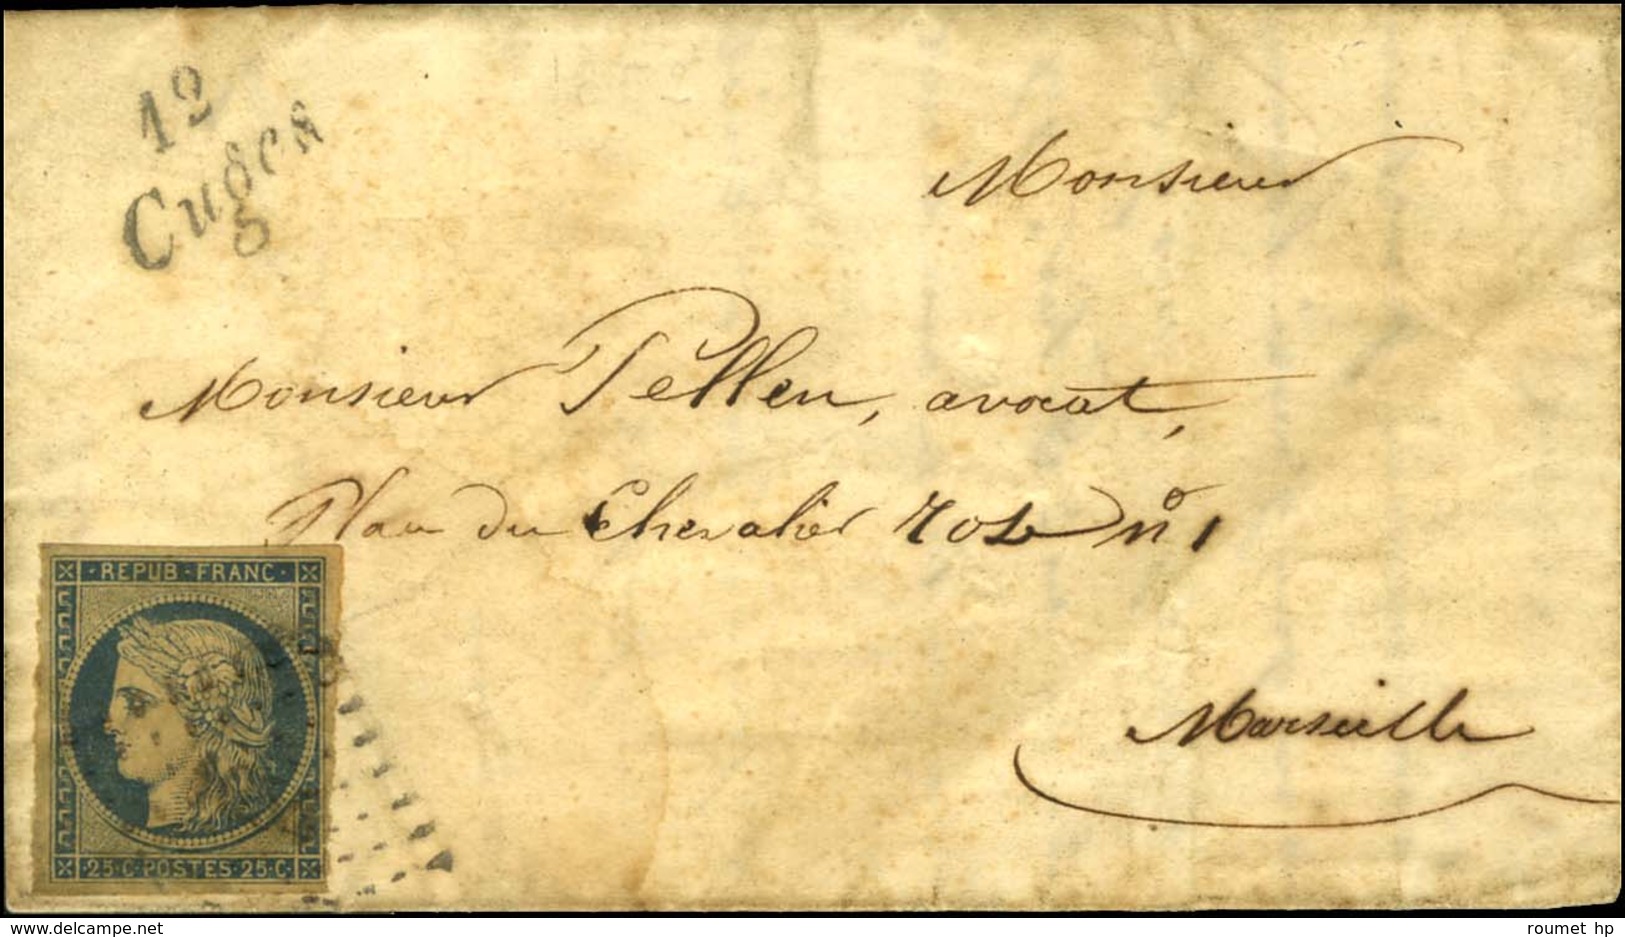 12
Cuges
Monsieur
Monsieur Pellen, avocat,
Plan du Chevalier rose n° 1
REPUB · FRANC ·
25 · C · POSTES · 25 · C ·
Marseille
delcampe.net
roumet hp